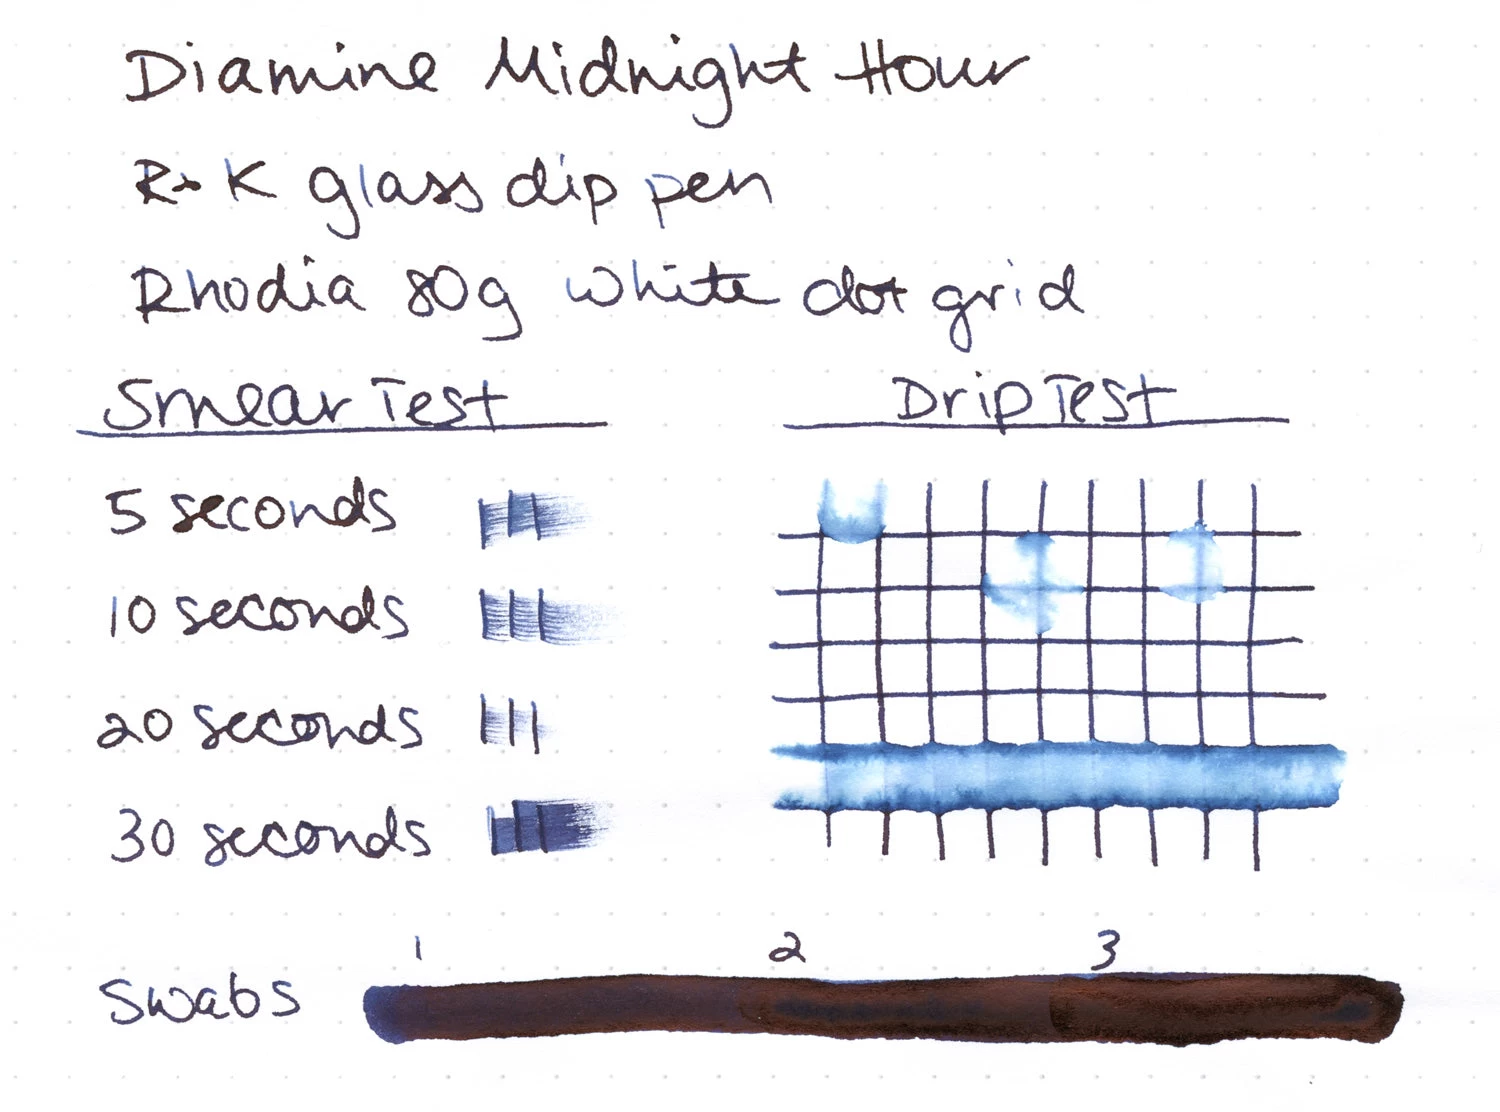 Diamine Midnight Hour
R+K glass dip pen
Rhodia 80g white dot grid
Smear Test
Drip Test
5 seconds
10 seconds
20 seconds
30 seconds
1 2 3
Swabs